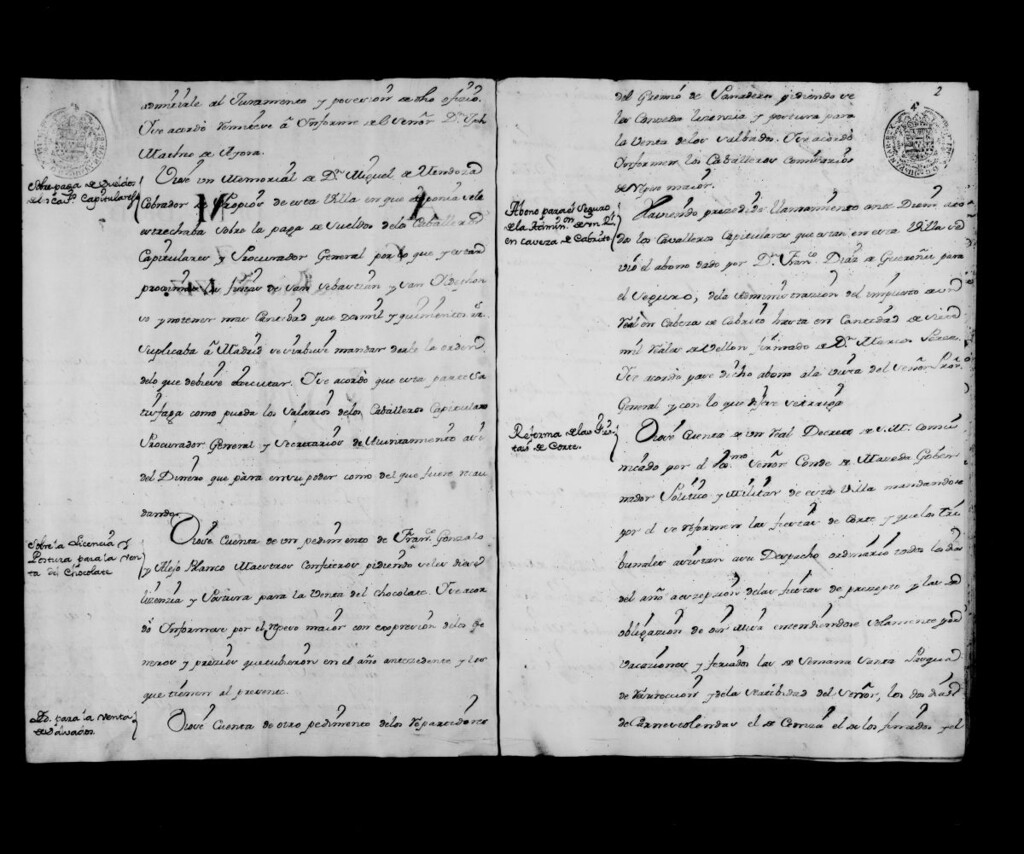 admitirle al Juramento y posesion de dho ofizio.
Se acordò Remitirse â Informe del Señor Dn. Jph
Marino de Ayora.
Sobre paga de Sueldos
Capitulares
Viose un Memorial de Dn. Miguel de Mendoza
Cobrador de Propios de esta Villa en que exponia se le
estrechaba sobre la paga de Sueldos de los Cavalleros
Capitulares y Procurador General por lo que y estar
proximas las fiestas de San Sebastian y San Yldephon
so y no tener mas Cantidad que zinco mil y quinientos
suplicaba â Madrid se sirbiese mandar darle la orden
de lo que debiese executar. Se acordò que esta parte sa
tisfaga como pueda los Salarios de los Caballeros Capitulares
Procurador General y Secretarios de Aiuntamiento asi
del Dinero que pàra en su poder como del que fuere recau
dando.
Sobre la Licencia y
Postura para la ven
ta del Chocolate
Viose Cuenta de un pedimento de Fran.co Gonzalo
y Alejo Blanco Maestros Confiteros pidiendo se les diese
lizenzia y Postura para la Venta del chocolate. Se acor
dò Informase por el repeso maior con expresion de los Ge
neros y prezios que tubieron en el año antezedente y los
que tienen al presente.
Yd. para la venta
de salvados.
Viose Cuenta de otro pedimento de los Repartidores
2
del Gremio de Panaderos pidiendo se
les Conzeda lizenzia y postura para
la Venta de los salbados. Se acordò
Informen los Caballeros Comisarios
de repeso maior.
Abono para el Seguro
de la Admin.on
en caveza de Cabrito
Haviendo prezedido llamamiento ante Diem a to
dos los Cavalleros Capitulares que estan en esta Villa se
viò el abono dado por Dn. Fran.co Diaz de para
el Seguro, de la Administracion del impuesto de un
Real en Cabeza de Cabrito hasta en Cantidad de siete
mil Reales de Vellon firmado de Dn. Marcos Perez.
Se acordò pase dicho abono a la Vista del Señor Pror.
General y con lo que dijere se traiga
Reforma de las Fies
tas de Corte.
Viose Cuenta de un Real Decreto de S. M. comu
nicado por el Exmo. Señor Conde de Maceda Gober
nador Politico y Militar de esta Villa mandandose
por el se reformen las fiestas de Corte, y que los Tri
bunales asistan a su Despacho ordinario todos los dias
del año a excepsion de las fiestas de prezepto y las de
obligazion de oir Misa entendiendose solamente por
Vacaziones y feriados las de Semana Santa Pasqua
de Resurreccion, y de la Natibidad del Señor, los dos dias
de Carnestolendas el de Ceniza el de los finados y el